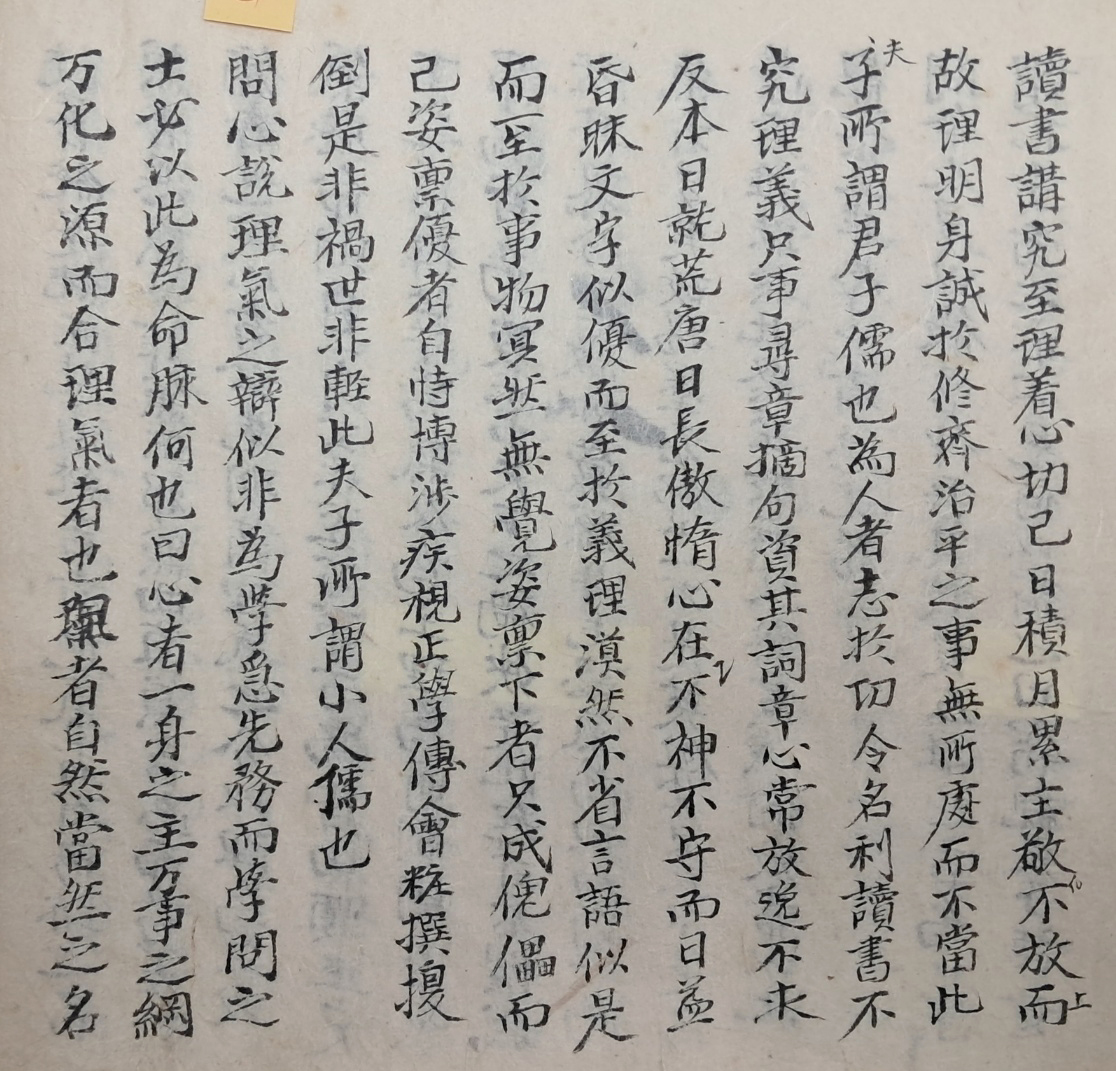 讀書講究至理着心切己日積月累主敬不放而
故理明身誠於修齊治平之事無所處而不當此
夫子所謂君子儒也為人者志於切令名利讀書不
究理義只事尋章摘句資其詞章心常放逸不求
反本日就荒唐日長傲惰心在不神不守而日益
昏昧文字似優而至於義理漠然不省言語似是
而至於事物冥然無覺姿禀下者只成傀儡而
己姿禀優者自恃博涉疾視正學傳會粧撰擾
倒是非禍世非輕此夫子所謂小人儒也
問心說理氣之辯似非為學急先務而學問之
士必以此為命脉何也曰心者一身之主万事之綱
万化之源而合理氣者也理者自然當然之名